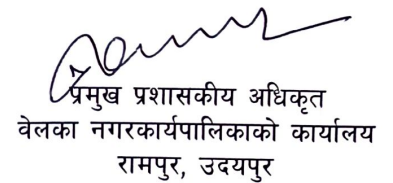 प्रमुख प्रशासकीय अधिकृत
वेलका नगरकार्यपालिकाको कार्यालय
रामपुर, उदयपुर